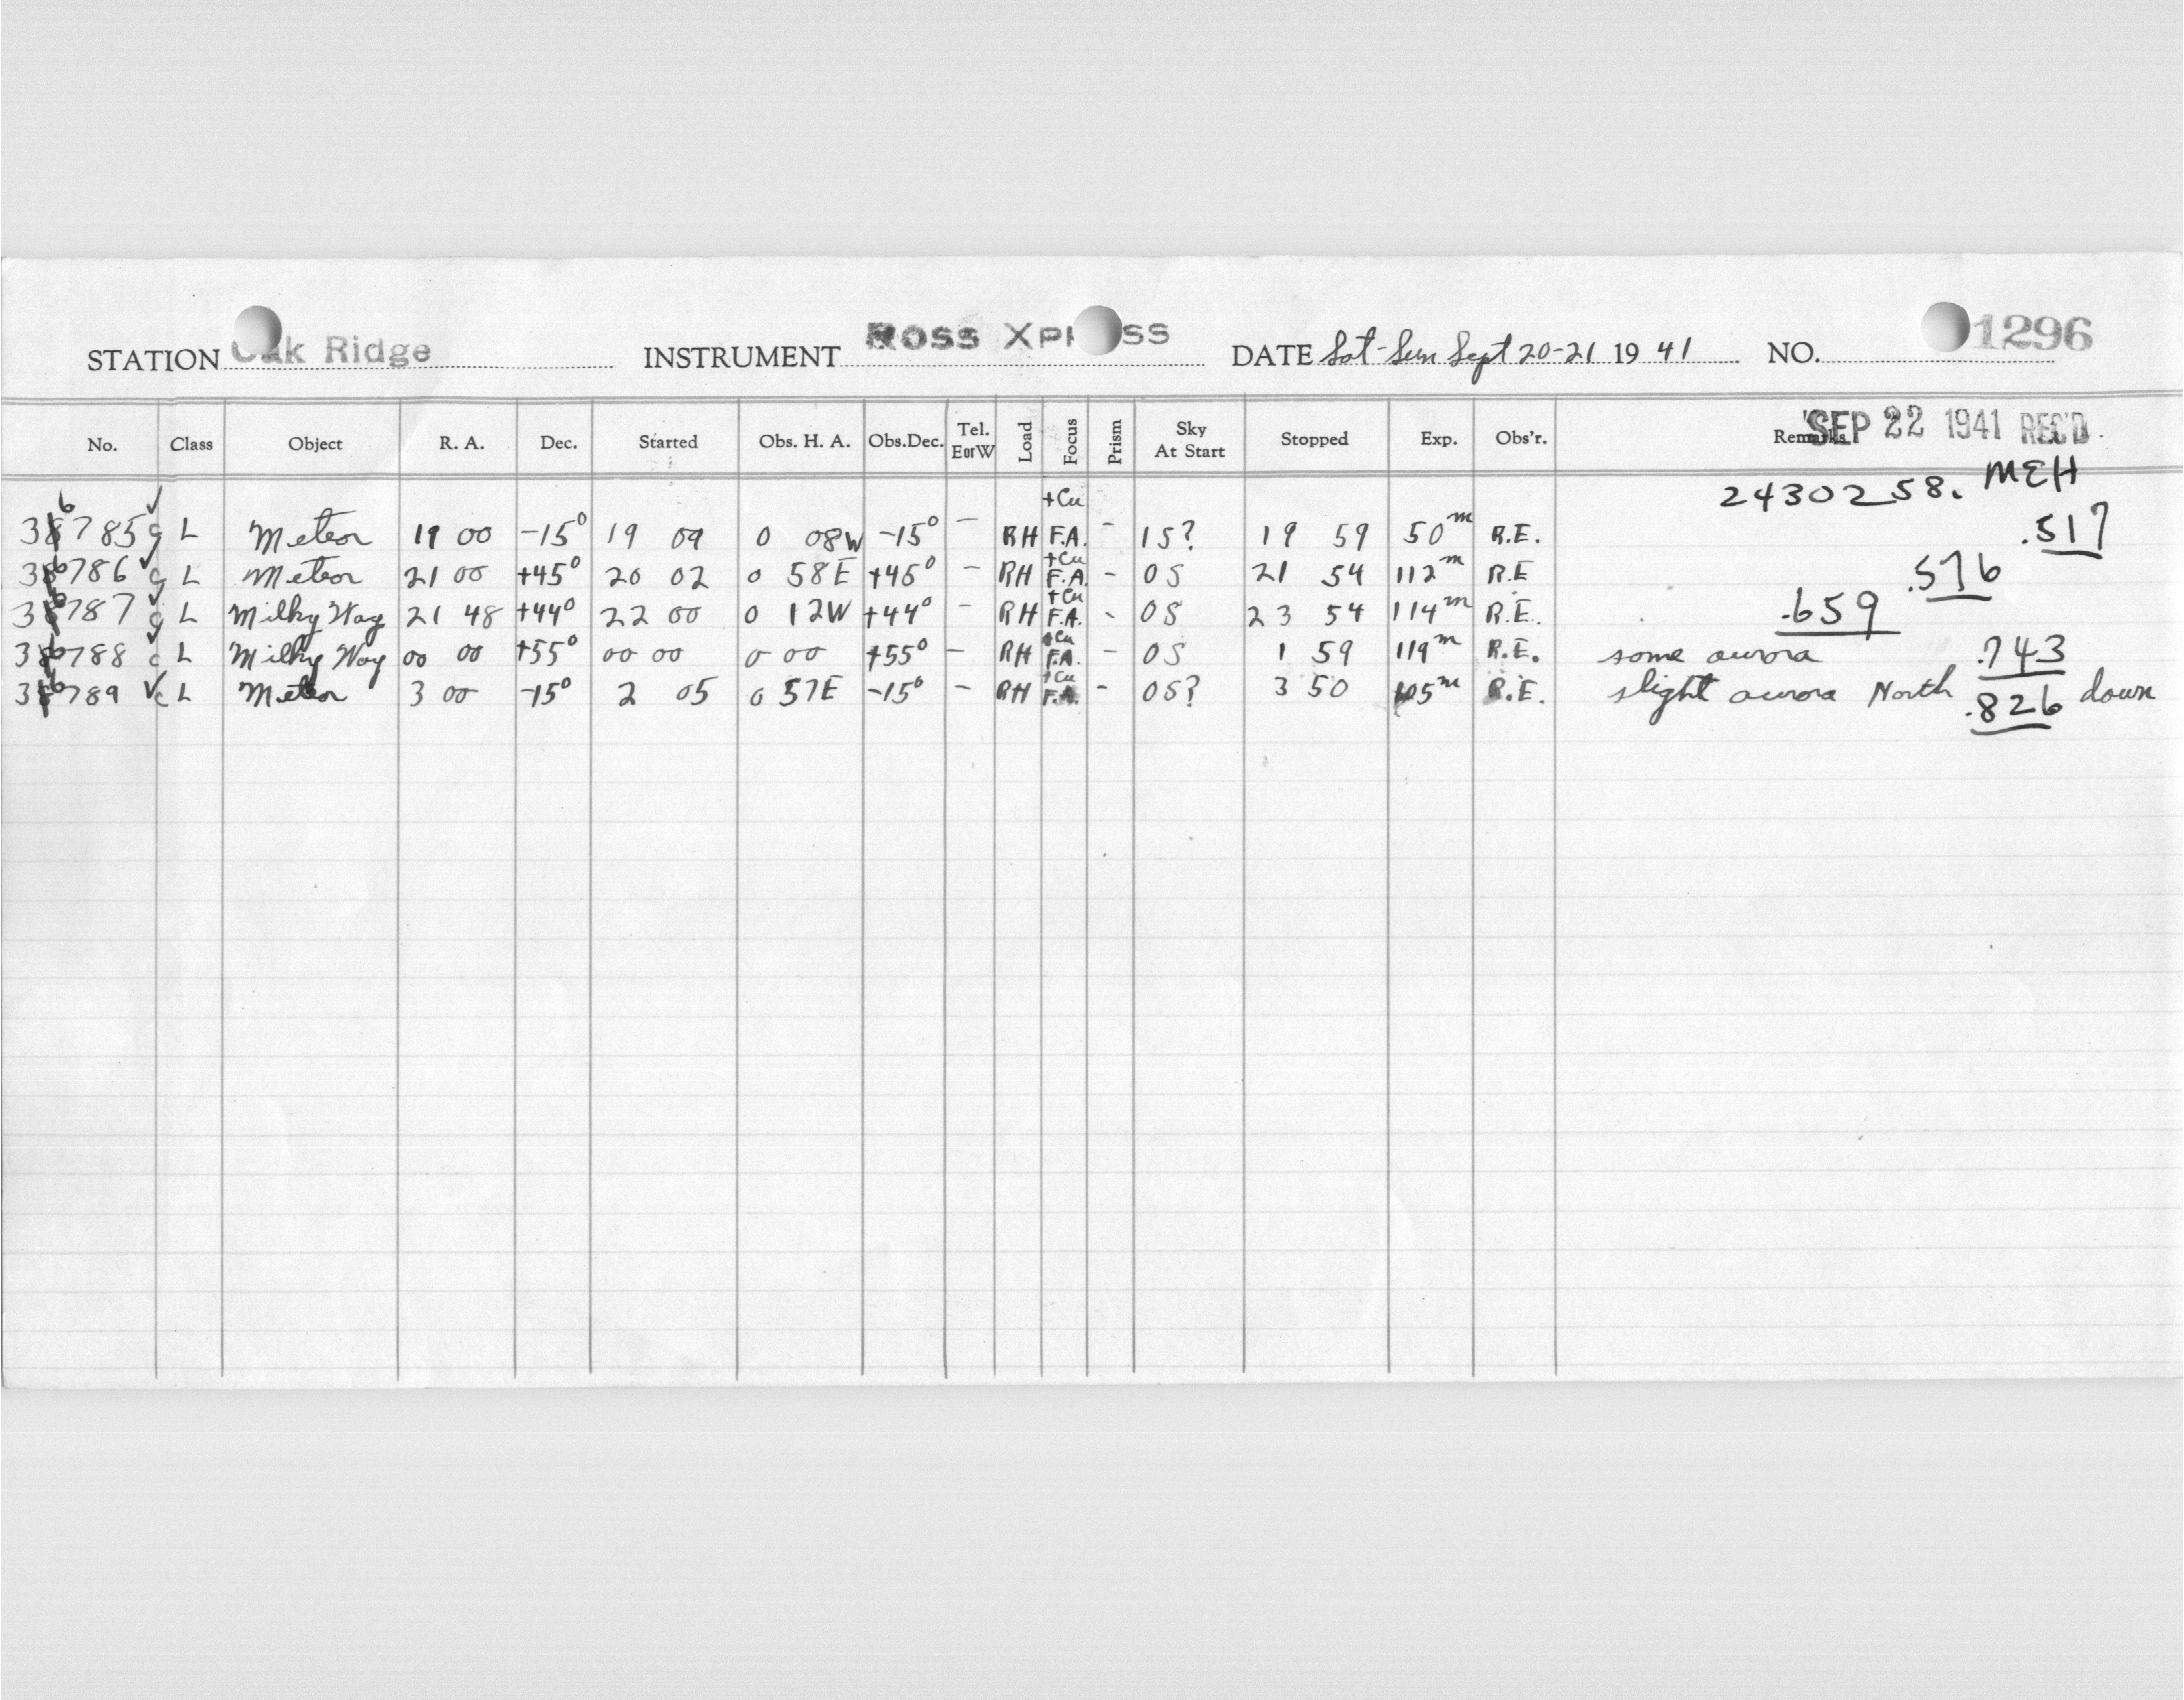 STATION Oak Ridge INSTRUMENT Ross Xpress DATE Sat-Sun Sept 20-21 19 41 NO. 1296
No. Class Object R. A. Dec. Started Obs. H. A. Obs.Dec. Tel. EorW Load Focus Prism Sky At Start Stopped Exp. Obs'r. Remarks SEP 22 1941 REC'D.
2430258. MEH
36785 ✓ c L Meteor 19 00 -15° 19 09 0 08W -15° - RH +Cu F.A. - 1S? 19 59 50m R.E. .517
36786 ✓ c L Meteor 21 00 +45° 20 02 0 58E +45° - RH +Cu F.A. - 0S 21 54 112m R.E .576
36787 ✓ c L Milky Way 21 48 +44° 22 00 0 12W +44° - RH +Cu F.A. - 0S 23 54 114m R.E. .659
36788 ✓ c L Milky Way 00 00 +55° 00 00 0 00 +55° - RH +Cu F.A. - 0S 1 59 119m R.E. some aurora .743
36789 ✓ c L Meteor 3 00 -15° 2 05 0 57E -15° - RH +Cu F.A. - 0S? 3 50 105m R.E. slight aurora North down .826